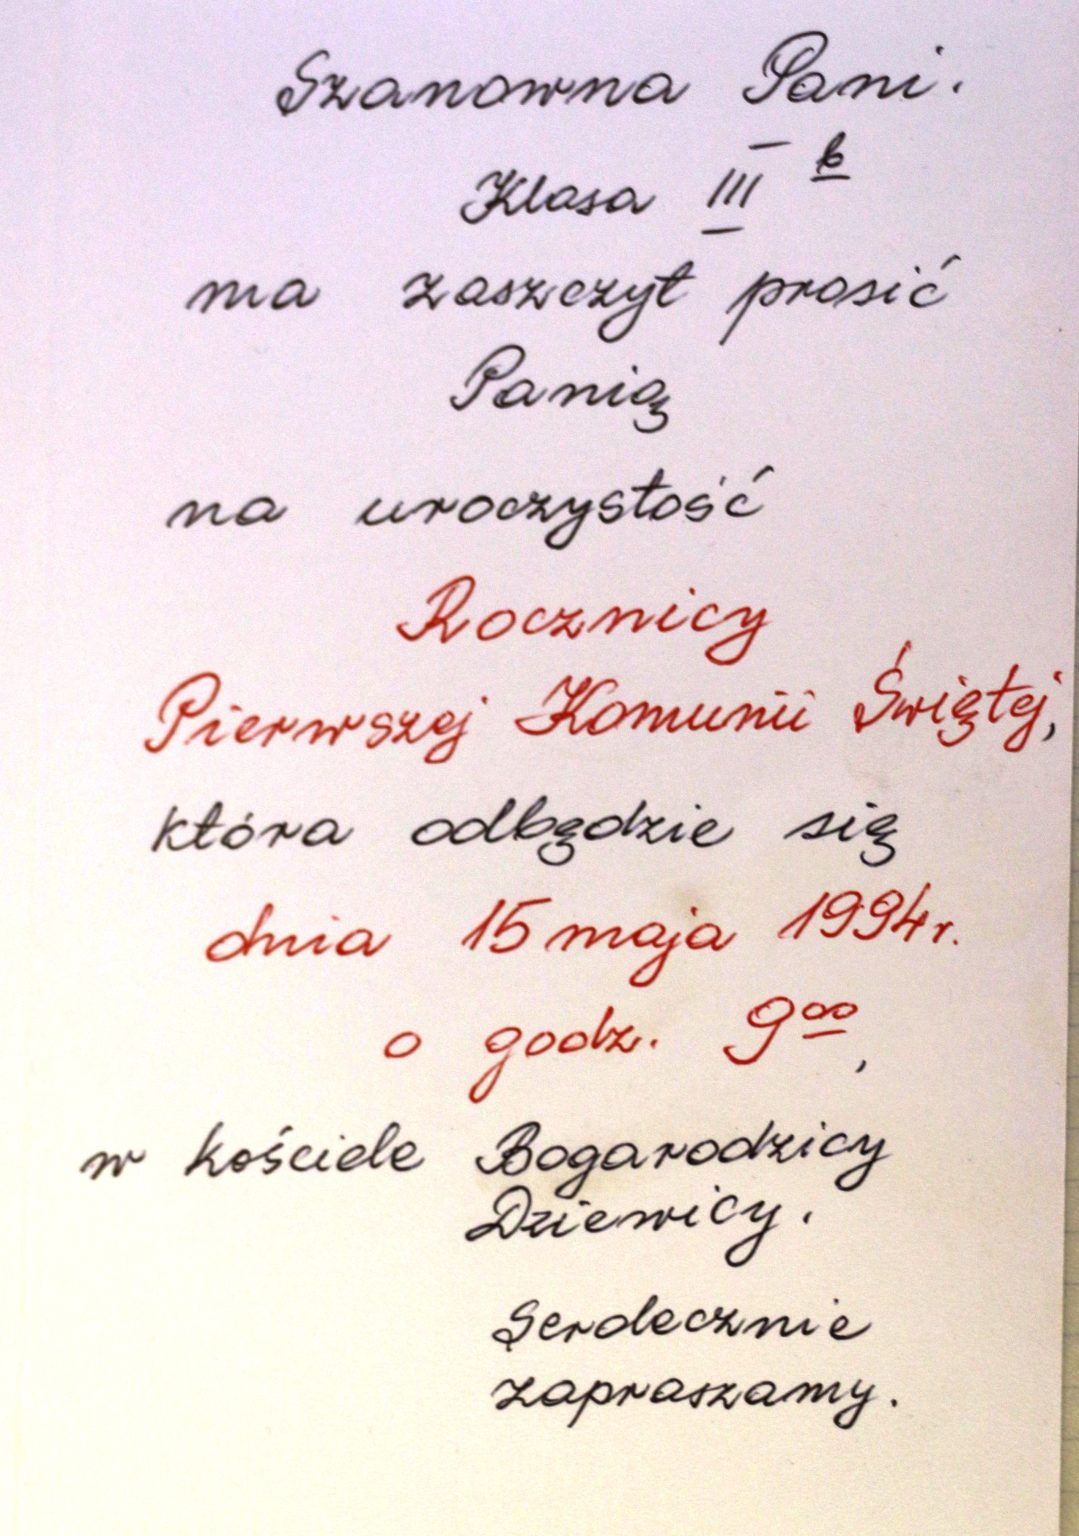 Szanowna Pani.
Klasa III b
ma zaszczyt prosić
Panią
na uroczystość
Rocznicy
Pierwszej Komunii Świętej,
która odbędzie się
dnia 15 maja 1994r.
o godz. 9⁰⁰,
w kościele Bogarodzicy
Dziewicy.
Serdecznie
zapraszamy.